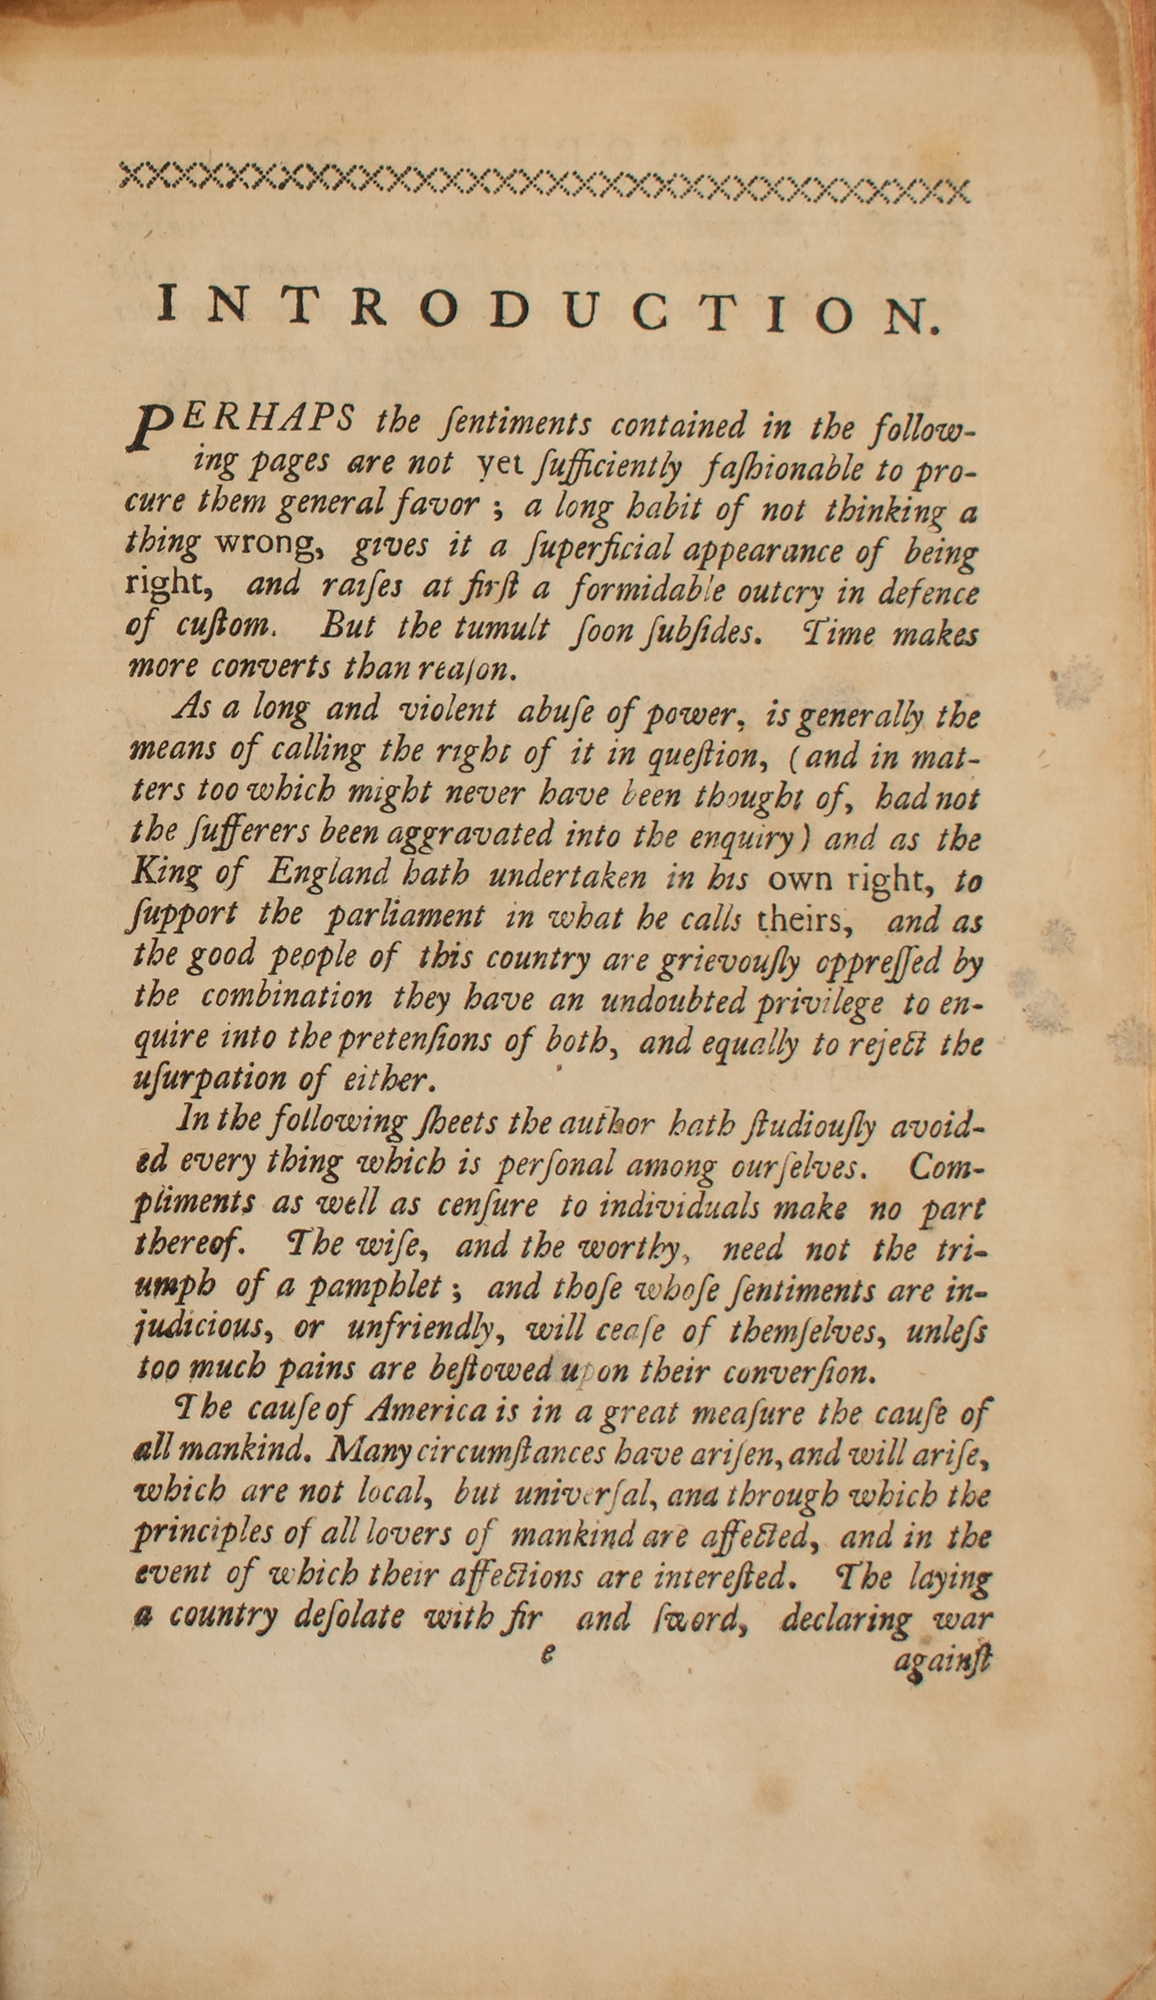 INTRODUCTION.
PERHAPS the ſentiments contained in the follow-
ing pages are not yet ſufficiently faſhionable to pro-
cure them general favor ; a long habit of not thinking a
thing wrong, gives it a ſuperficial appearance of being
right, and raiſes at firſt a formidable outcry in defence
of cuſtom. But the tumult ſoon ſubſides. Time makes
more converts than reaſon.
As a long and violent abuſe of power, is generally the
means of calling the right of it in queſtion, (and in mat-
ters too which might never have been thought of, had not
the ſufferers been aggravated into the enquiry) and as the
King of England hath undertaken in his own right, to
ſupport the parliament in what he calls theirs, and as
the good people of this country are grievouſly oppreſſed by
the combination they have an undoubted privilege to en-
quire into the pretenſions of both, and equally to reject the
uſurpation of either.
In the following ſheets the author hath ſtudiouſly avoid-
ed every thing which is perſonal among ourſelves. Com-
pliments as well as cenſure to individuals make no part
thereof. The wiſe, and the worthy, need not the tri-
umph of a pamphlet ; and thoſe whoſe ſentiments are in-
judicious, or unfriendly, will ceaſe of themſelves, unleſs
too much pains are beſtowed upon their converſion.
The cauſe of America is in a great meaſure the cauſe of
all mankind. Many circumſtances have ariſen, and will ariſe,
which are not local, but univerſal, and through which the
principles of all lovers of mankind are affected, and in the
event of which their affections are intereſted. The laying
a country deſolate with fir and ſword, declaring war
e againſt